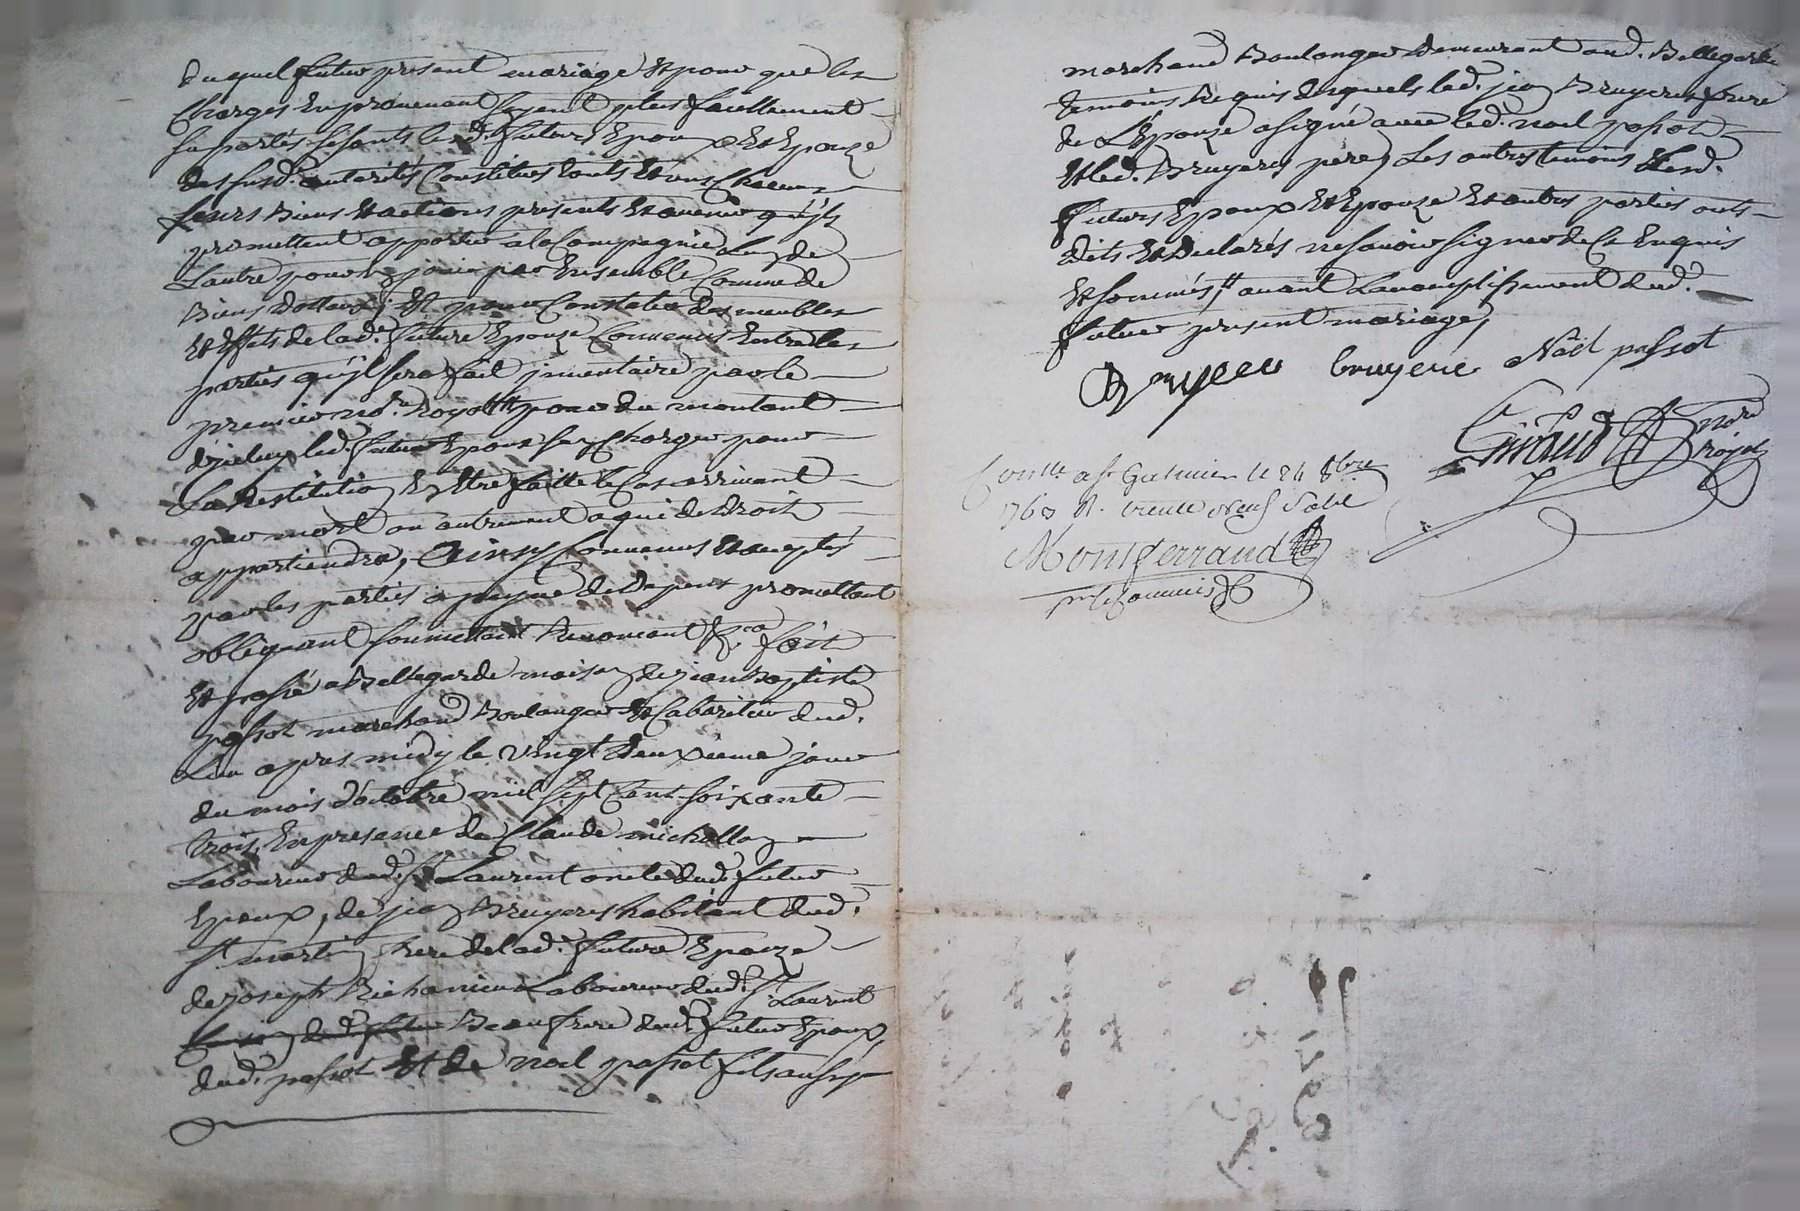 duquel futur present mariage Et pour que les
Charges En provenant soyent plus facillement
suportés se sonts lesd. futurs Epoux Et Epouze
des susd. autorités Constitués touts Et uns Chacuns
Leurs Biens Et actions presents Et avenir qu'ils
promettent apporter a la Compagnie L'un de
L'autre pour En jouir par Ensemble Comme de
Biens Dottaux, Et pour Constater des meubles
Et Effets de lad. future Epouze Convenus Entre les
parties qu'il sera fait jnventaire par le
premier no.re Royal Et pour du montant
d'jceluy led. futur Epoux s'en Charger pour
La Restitution En Etre faitte le Cas arrivant
par mort ou autrement a qui de Droit
appartiendra, Ainsy Convenus Et acceptés
par les parties a peyne de Depens promettant
obligeant soumettant Renoncant &.ca fait
Et passé a Bellegarde maison de jean Baptiste
passot marchand Boulanger Et Cabaretier dud.
Lieu apres midy le vingt Deuxieme jour
du mois d'octobre mil sept Cent soixante
trois, En presence de Claude michallon
Laboureur dud. St Laurent oncle dud. futur
Epoux, de jean Bruyeres habitant dud.
St. martin frere de lad. future Epouze
de joseph Richarnier Laboureur dud. St. Laurent
dud. futur Beaufrere dud. futur Epoux,
dud. passot Et de noel passot fils aussy
marchand Boulanger Demeurant aud. Bellegarde
temoins Requis desquels led. jean Bruyeres frere
de L'Epouze a signé avec led. noel passot
Et led. Bruyeres pere, Les autres temoins Lesd.
futurs Epoux Et Epouze Et autres parties onts
dits Et Declarés ne savoir signer de Ce Enquis
Et sommés, Et avant L'accomplissement dud.
futur present mariage,
Bruyere bruyerie Noël passot
Giraud no.re royal
Con.lle a St Galmier le 24 8bre
1763 R. trente neuf sols
Montferrand